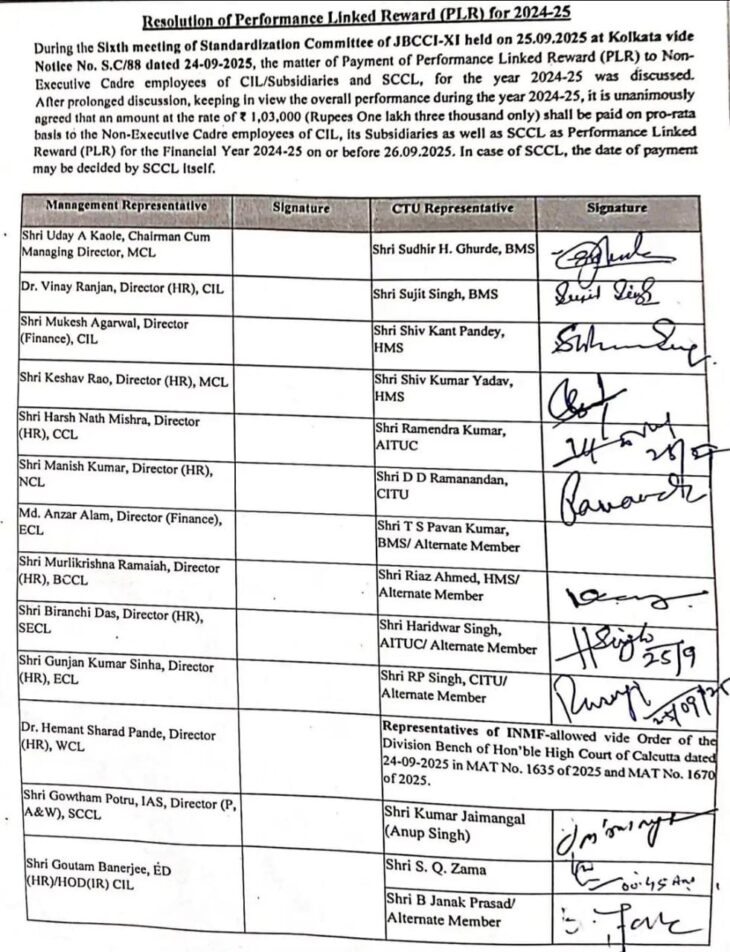 Resolution of Performance Linked Reward (PLR) for 2024-25
During the Sixth meeting of Standardization Committee of JBCCI-XI held on 25.09.2025 at Kolkata vide
Notice No. S.C/88 dated 24-09-2025, the matter of Payment of Performance Linked Reward (PLR) to Non-
Executive Cadre employees of CIL/Subsidiaries and SCCL, for the year 2024-25 was discussed.
After prolonged discussion, keeping in view the overall performance during the year 2024-25, it is unanimously
agreed that an amount at the rate of ₹ 1,03,000 (Rupees One lakh three thousand only) shall be paid on pro-rata
basis to the Non-Executive Cadre employees of CIL, its Subsidiaries as well as SCCL as Performance Linked
Reward (PLR) for the Financial Year 2024-25 on or before 26.09.2025. In case of SCCL, the date of payment
may be decided by SCCL itself.
Management Representative Signature CTU Representative Signature
Shri Uday A Kaole, Chairman Cum
Managing Director, MCL
Shri Sudhir H. Ghurde, BMS
Dr. Vinay Ranjan, Director (HR), CIL
Shri Sujit Singh, BMS
Sujit Singh
Shri Mukesh Agarwal, Director
(Finance), CIL
Shri Shiv Kant Pandey,
HMS
Shri Keshav Rao, Director (HR), MCL
Shri Shiv Kumar Yadav,
HMS
Shri Harsh Nath Mishra, Director
(HR), CCL
Shri Ramendra Kumar,
AITUC
Shri Manish Kumar, Director (HR),
NCL
Shri D D Ramanandan,
CITU
Md. Anzar Alam, Director (Finance),
ECL
Shri T S Pavan Kumar,
BMS/ Alternate Member
Shri Murlikrishna Ramaiah, Director
(HR), BCCL
Shri Riaz Ahmed, HMS/
Alternate Member
Shri Biranchi Das, Director (HR),
SECL
Shri Haridwar Singh,
AITUC/ Alternate Member
HSingh
25/9
Shri Gunjan Kumar Sinha, Director
(HR), ECL
Shri RP Singh, CITU/
Alternate Member
25/09/25
Dr. Hemant Sharad Pande, Director
(HR), WCL
Representatives of INMF-allowed vide Order of the
Division Bench of Hon'ble High Court of Calcutta dated
24-09-2025 in MAT No. 1635 of 2025 and MAT No. 1670
of 2025.
Shri Gowtham Potru, IAS, Director (P,
A&W), SCCL
Shri Kumar Jaimangal
(Anup Singh)
Shri Goutam Banerjee, ED
(HR)/HOD(IR) CIL
Shri S. Q. Zama
Shri B Janak Prasad/
Alternate Member